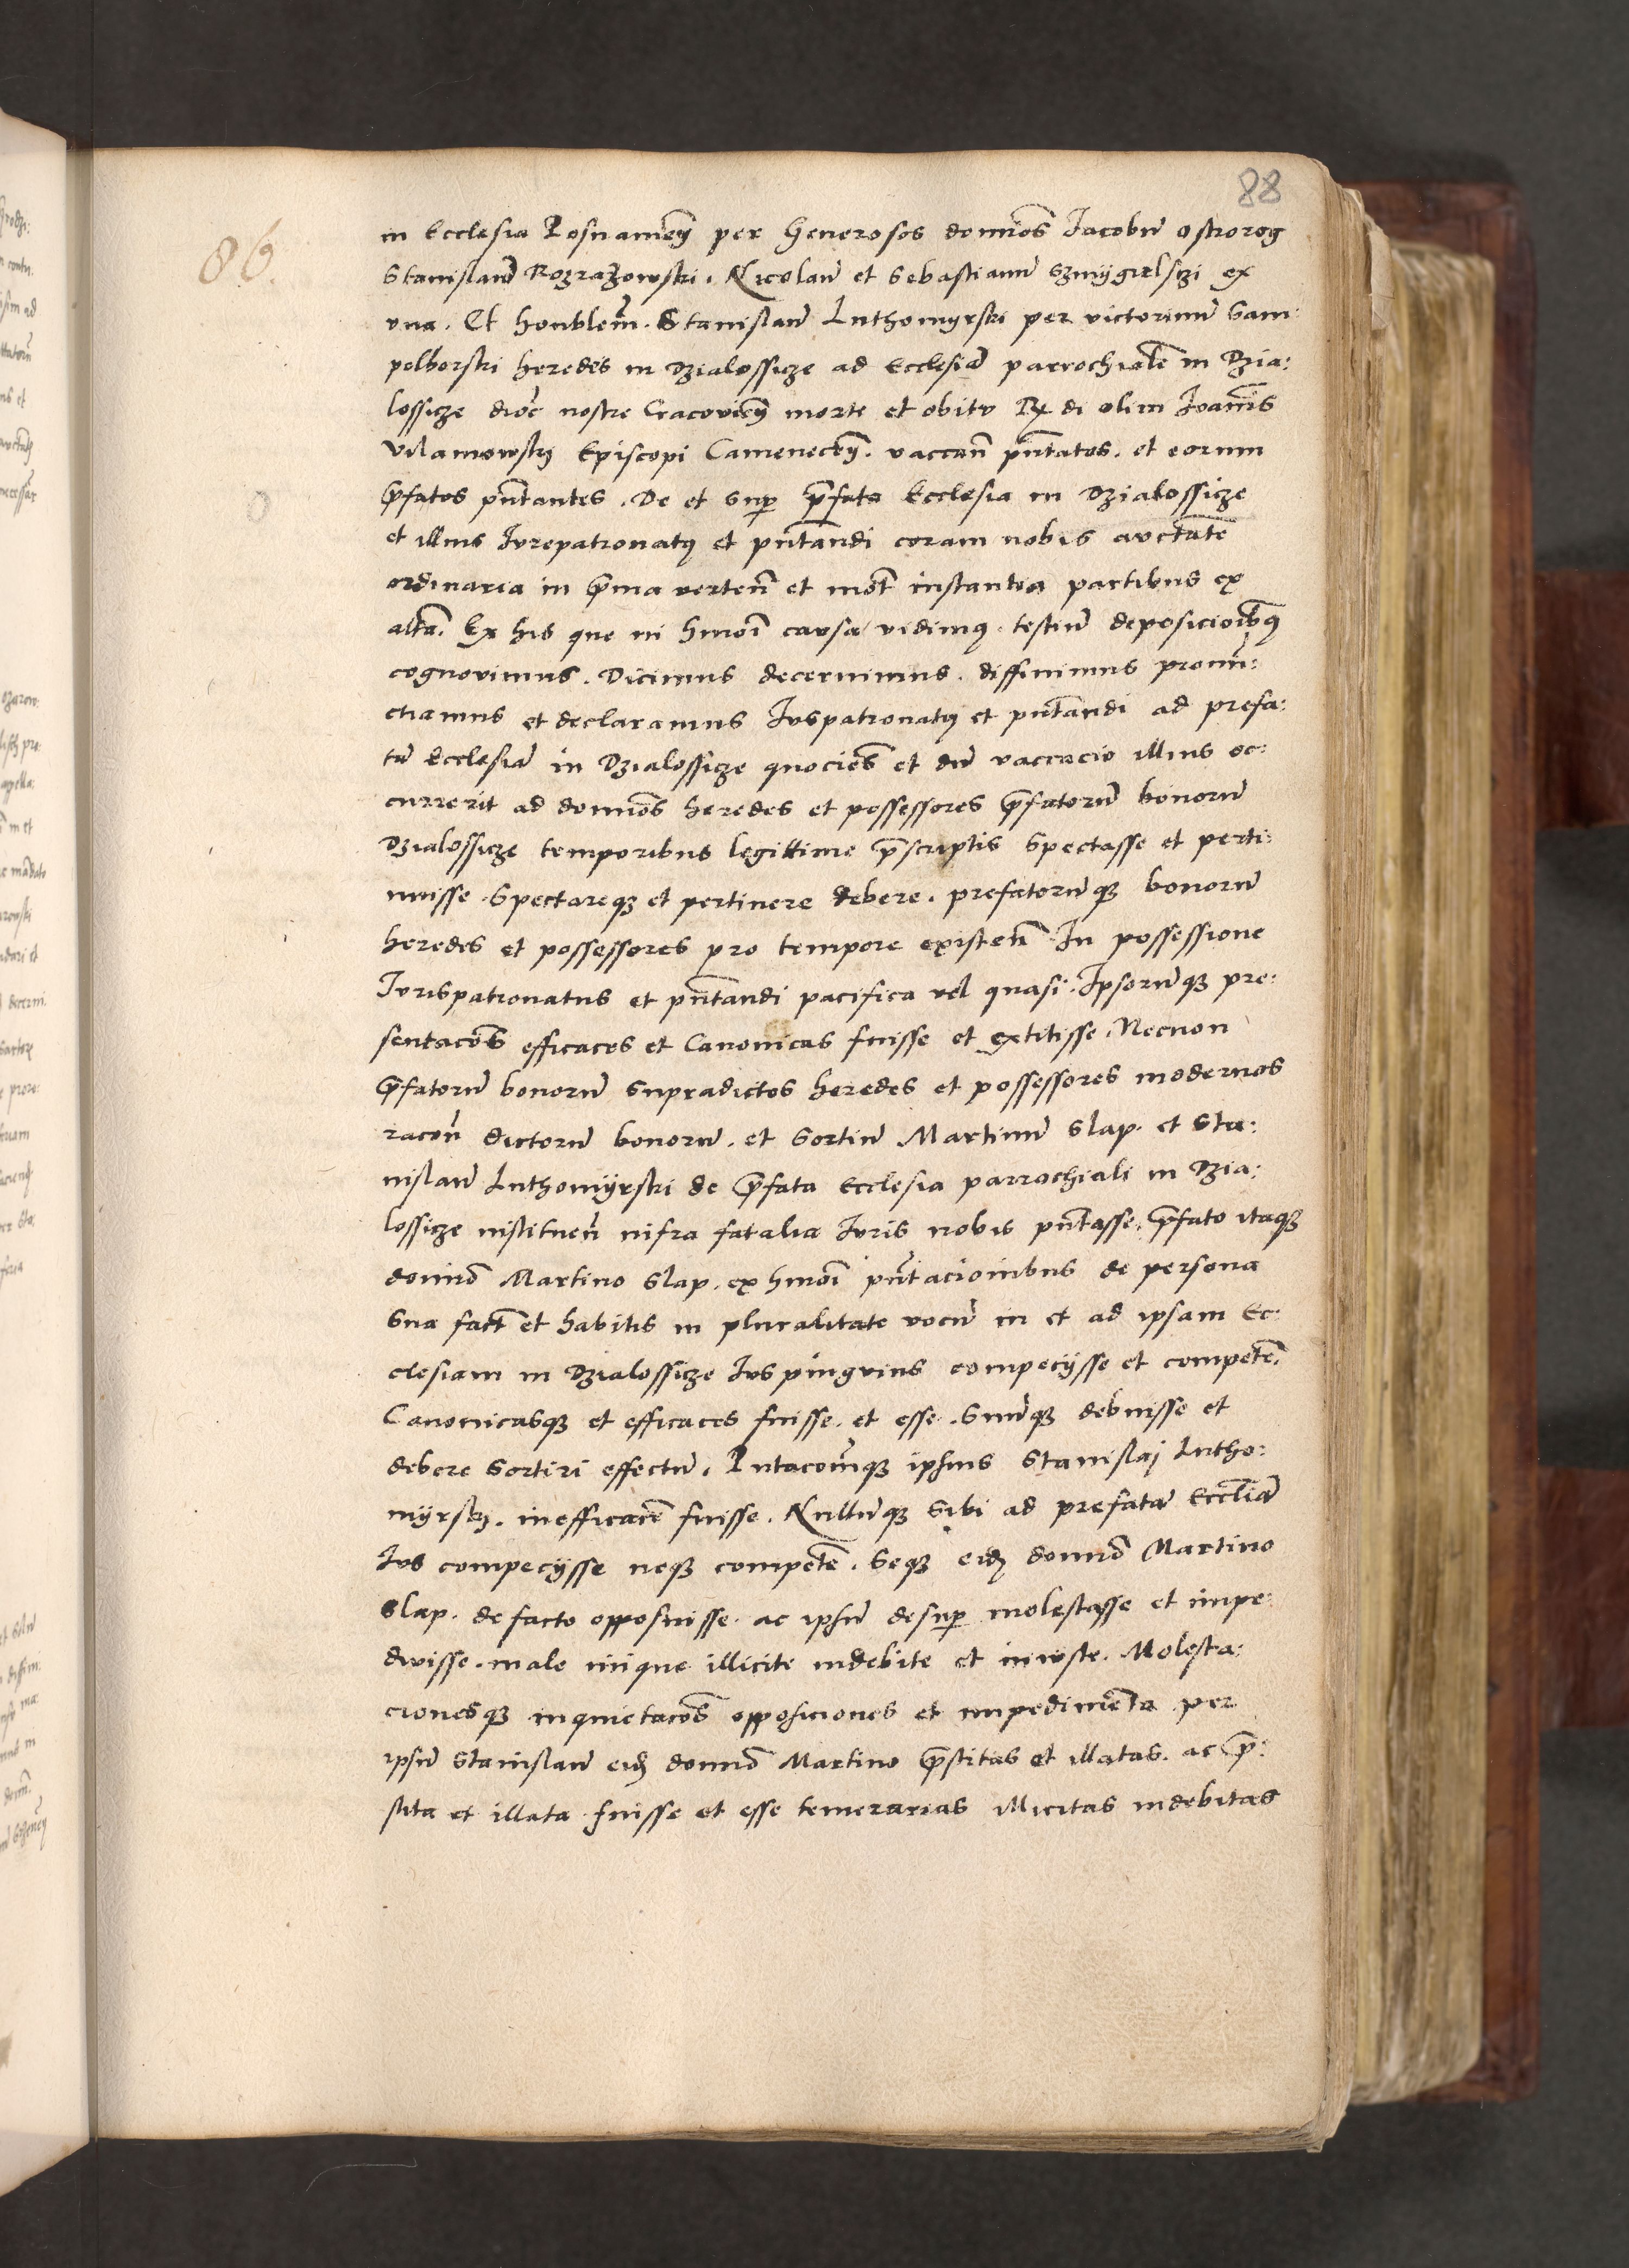 88
86.
in Ecclesia Posnanień per Generosos domĩos Jacobũ ostrorog
Stanislaũ Rozrażowski. Nicolaũ et Sebastianũ Szmÿgielszi ex
vna. Et honblem̃. Stanislaũ Luthomyrski per victorinũ Sam:
polborski heredes in Dzialossicze ad Ecclesiã parrochialẽ in Dzia:
lossicze dioc̃ nostre Cracovień morte et obitu Rx di olim Joannis
Vilamowskj Episcopi Cameneceń. vaccań pñtatos. et eorum
p̃fatos pñtantes. De et sup p̃fata Ecclesia in Dzialossicze
et illius Jurepatronatꝰ et pñtandi coram nobis auctãte
ordinaria in p̃ma verteñ et mot̃ instantia partibus ex
alt̃a. Ex his que in hmõi causa vidimꝰ testiũ deposicioĩbꝰqꝫ
cognovimus. Dicimus decernimus. diffinimus pronũ:
ctiamus et declaramus Juspatronatꝰ et pñtandi ad prefa:
tã Ecclesiã in Dzialossicze quocies et dũ vaccacio illius oc:
currerit ad domĩos heredes et possessores p̃fatorũ bonorũ
Dzialossicze temporibus legittime p̃scriptis Spectasse et perti:
nuisse. Spectareqꝫ et pertinere debere. prefatorũqꝫ bonorũ
heredes et possessores pro tempore existeñ In possessione
Jurispatronatus et pñtandi pacifica vel quasi. Ipsorũqꝫ pre:
sentacões efficaces et Canonicas fuisse et extitisse. Necnon
p̃fatorũ bonorũ supradictos heredes et possessores modernos
racoñ dictorũ bonorũ. et Sortiũ Martinũ Slap. et Sta:
nislaũ Luthomÿrski de p̃fata Ecclesia parrochiali in Dzia:
lossicze instituen̄ infra fatalia Juris nobis pñtasse. p̃fato itaqꝫ
domĩo Martino Slap. ex hmõi pñtacionibus de persona
Sua fact̃ et habitis in pluralitate vocũ in et ad ipsam Ec:
clesiam in Dzialossicze Jus pinguius compecÿsse et competẽ.
Canonicasqꝫ et efficaces fuisse. et esse. Suũqꝫ debuisse et
debere Sortiri effectũ. Pñtacoñemqꝫ ipsius Stanislaj Lutho:
mÿrskj. inefficacẽ fuisse. Nullũqꝫ Sibi ad prefatã Eccl̃iã
Jus compecÿsse neqꝫ competẽ. Seqꝫ eidꝫ domĩo Martino
Slap. de facto opposuisse. ac ipsũ desup molestasse et impe:
divisse. male inique illicite indebite et iniuste. Molesta:
cionesqꝫ inquietacões opposiciones et impedimẽta per
ipsũ Stanislaũ eidꝫ domĩo Martino p̃stitas et illatas. ac p̃:
stita et illata fuisse et esse temerarias illicitas indebitas